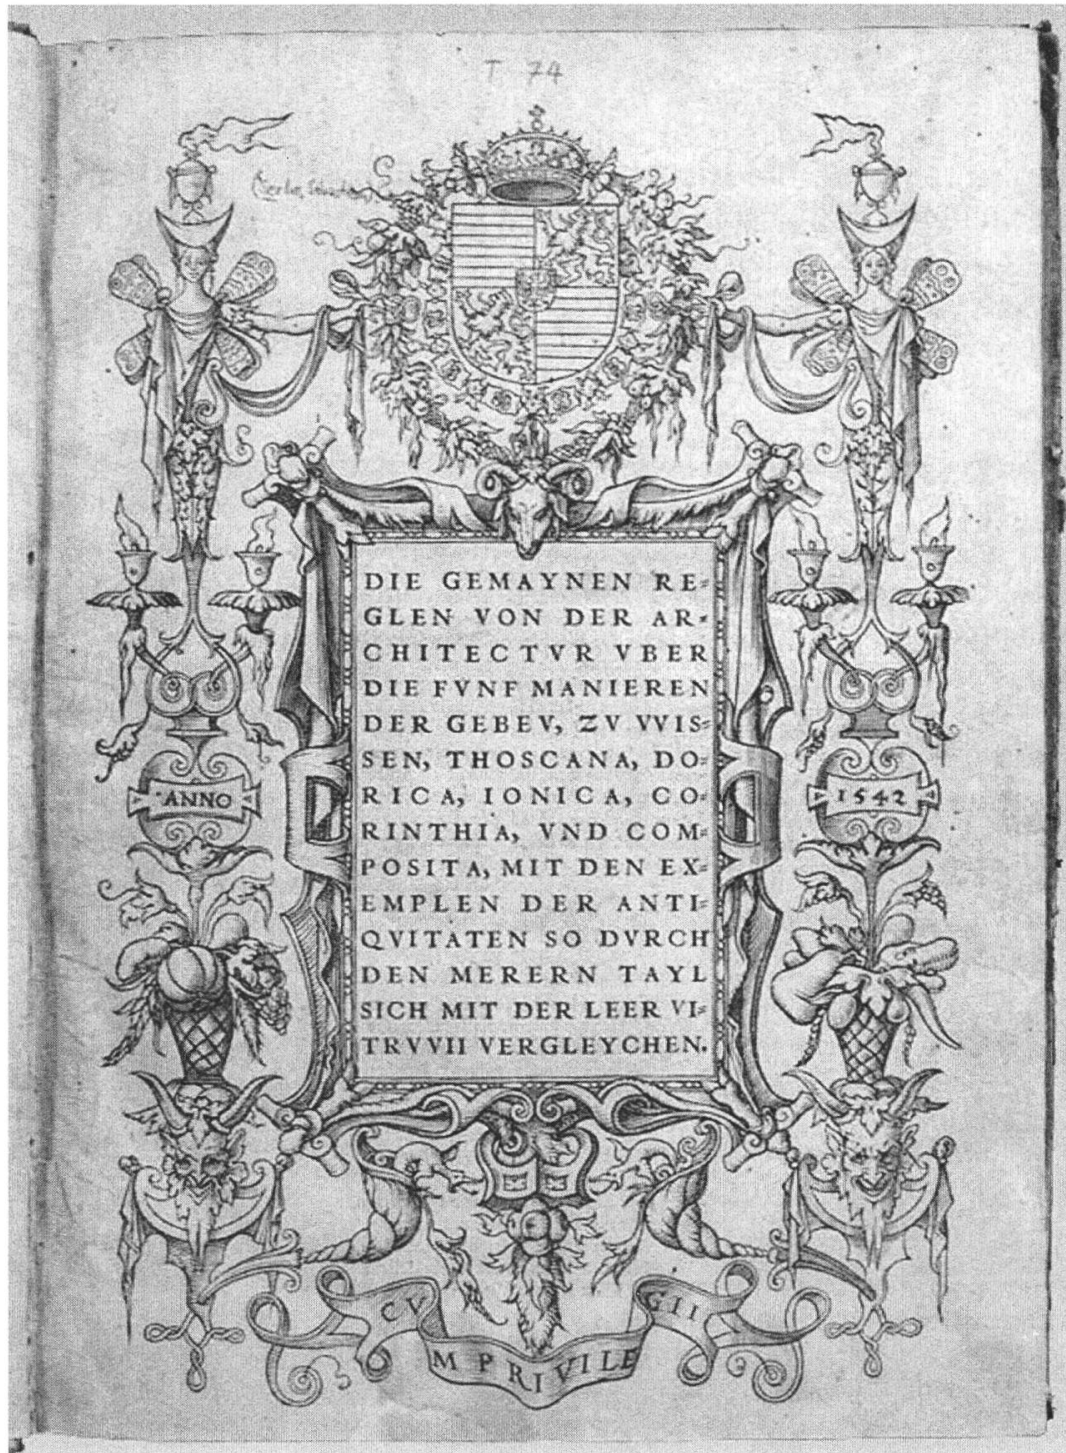 T 74
DIE GEMAYNEN RE=
GLEN VON DER AR=
CHITECTVR VBER
DIE FVNF MANIEREN
DER GEBEV, ZV VVIS=
SEN, THOSCANA, DO=
RICA, IONICA, CO=
RINTHIA, VND COM=
POSITA, MIT DEN EX=
EMPLEN DER ANTI=
QVITATEN SO DVRCH
DEN MERERN TAYL
SICH MIT DER LEER VI=
TRVVII VERGLEYCHEN.
ANNO
1542
CV
M PRIVILE
GII